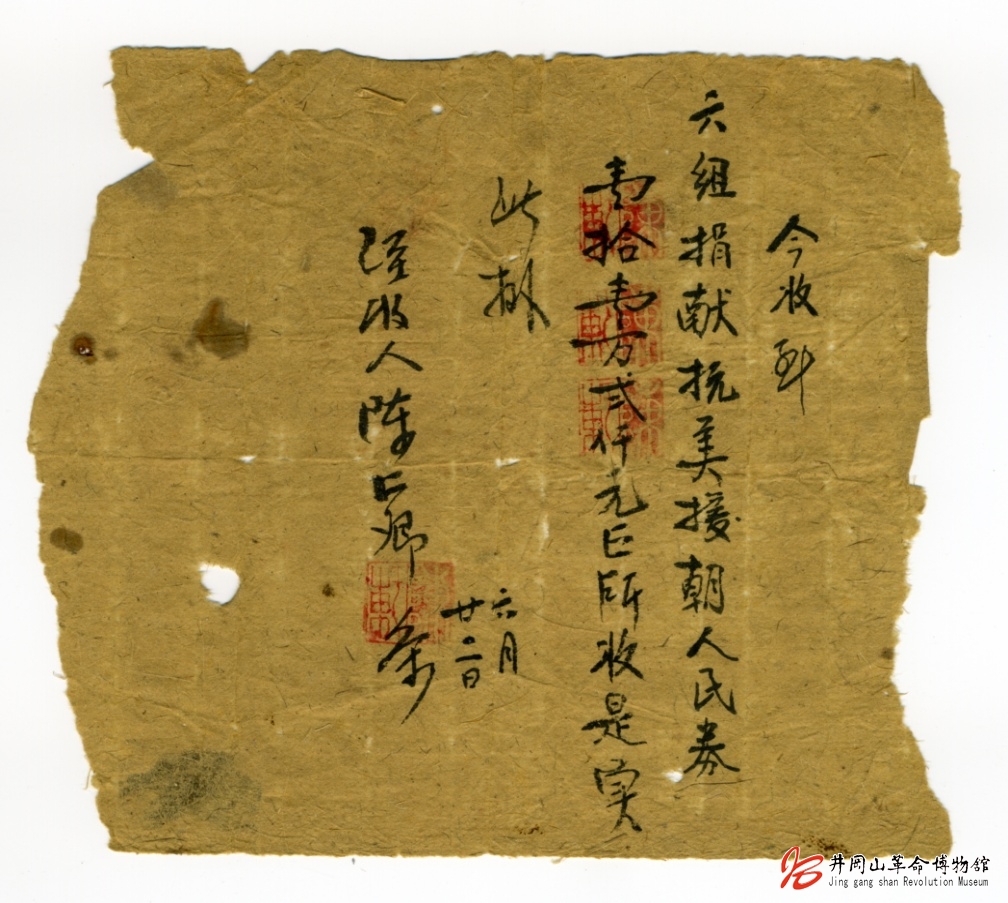 今收到
六组捐献抗美援朝人民券
壹拾壹万弍仟元正所收是实
此据
六月
廿二日
经收人陈仁卿条
井岡山革命博物館
Jing gang shan Revolution Museum